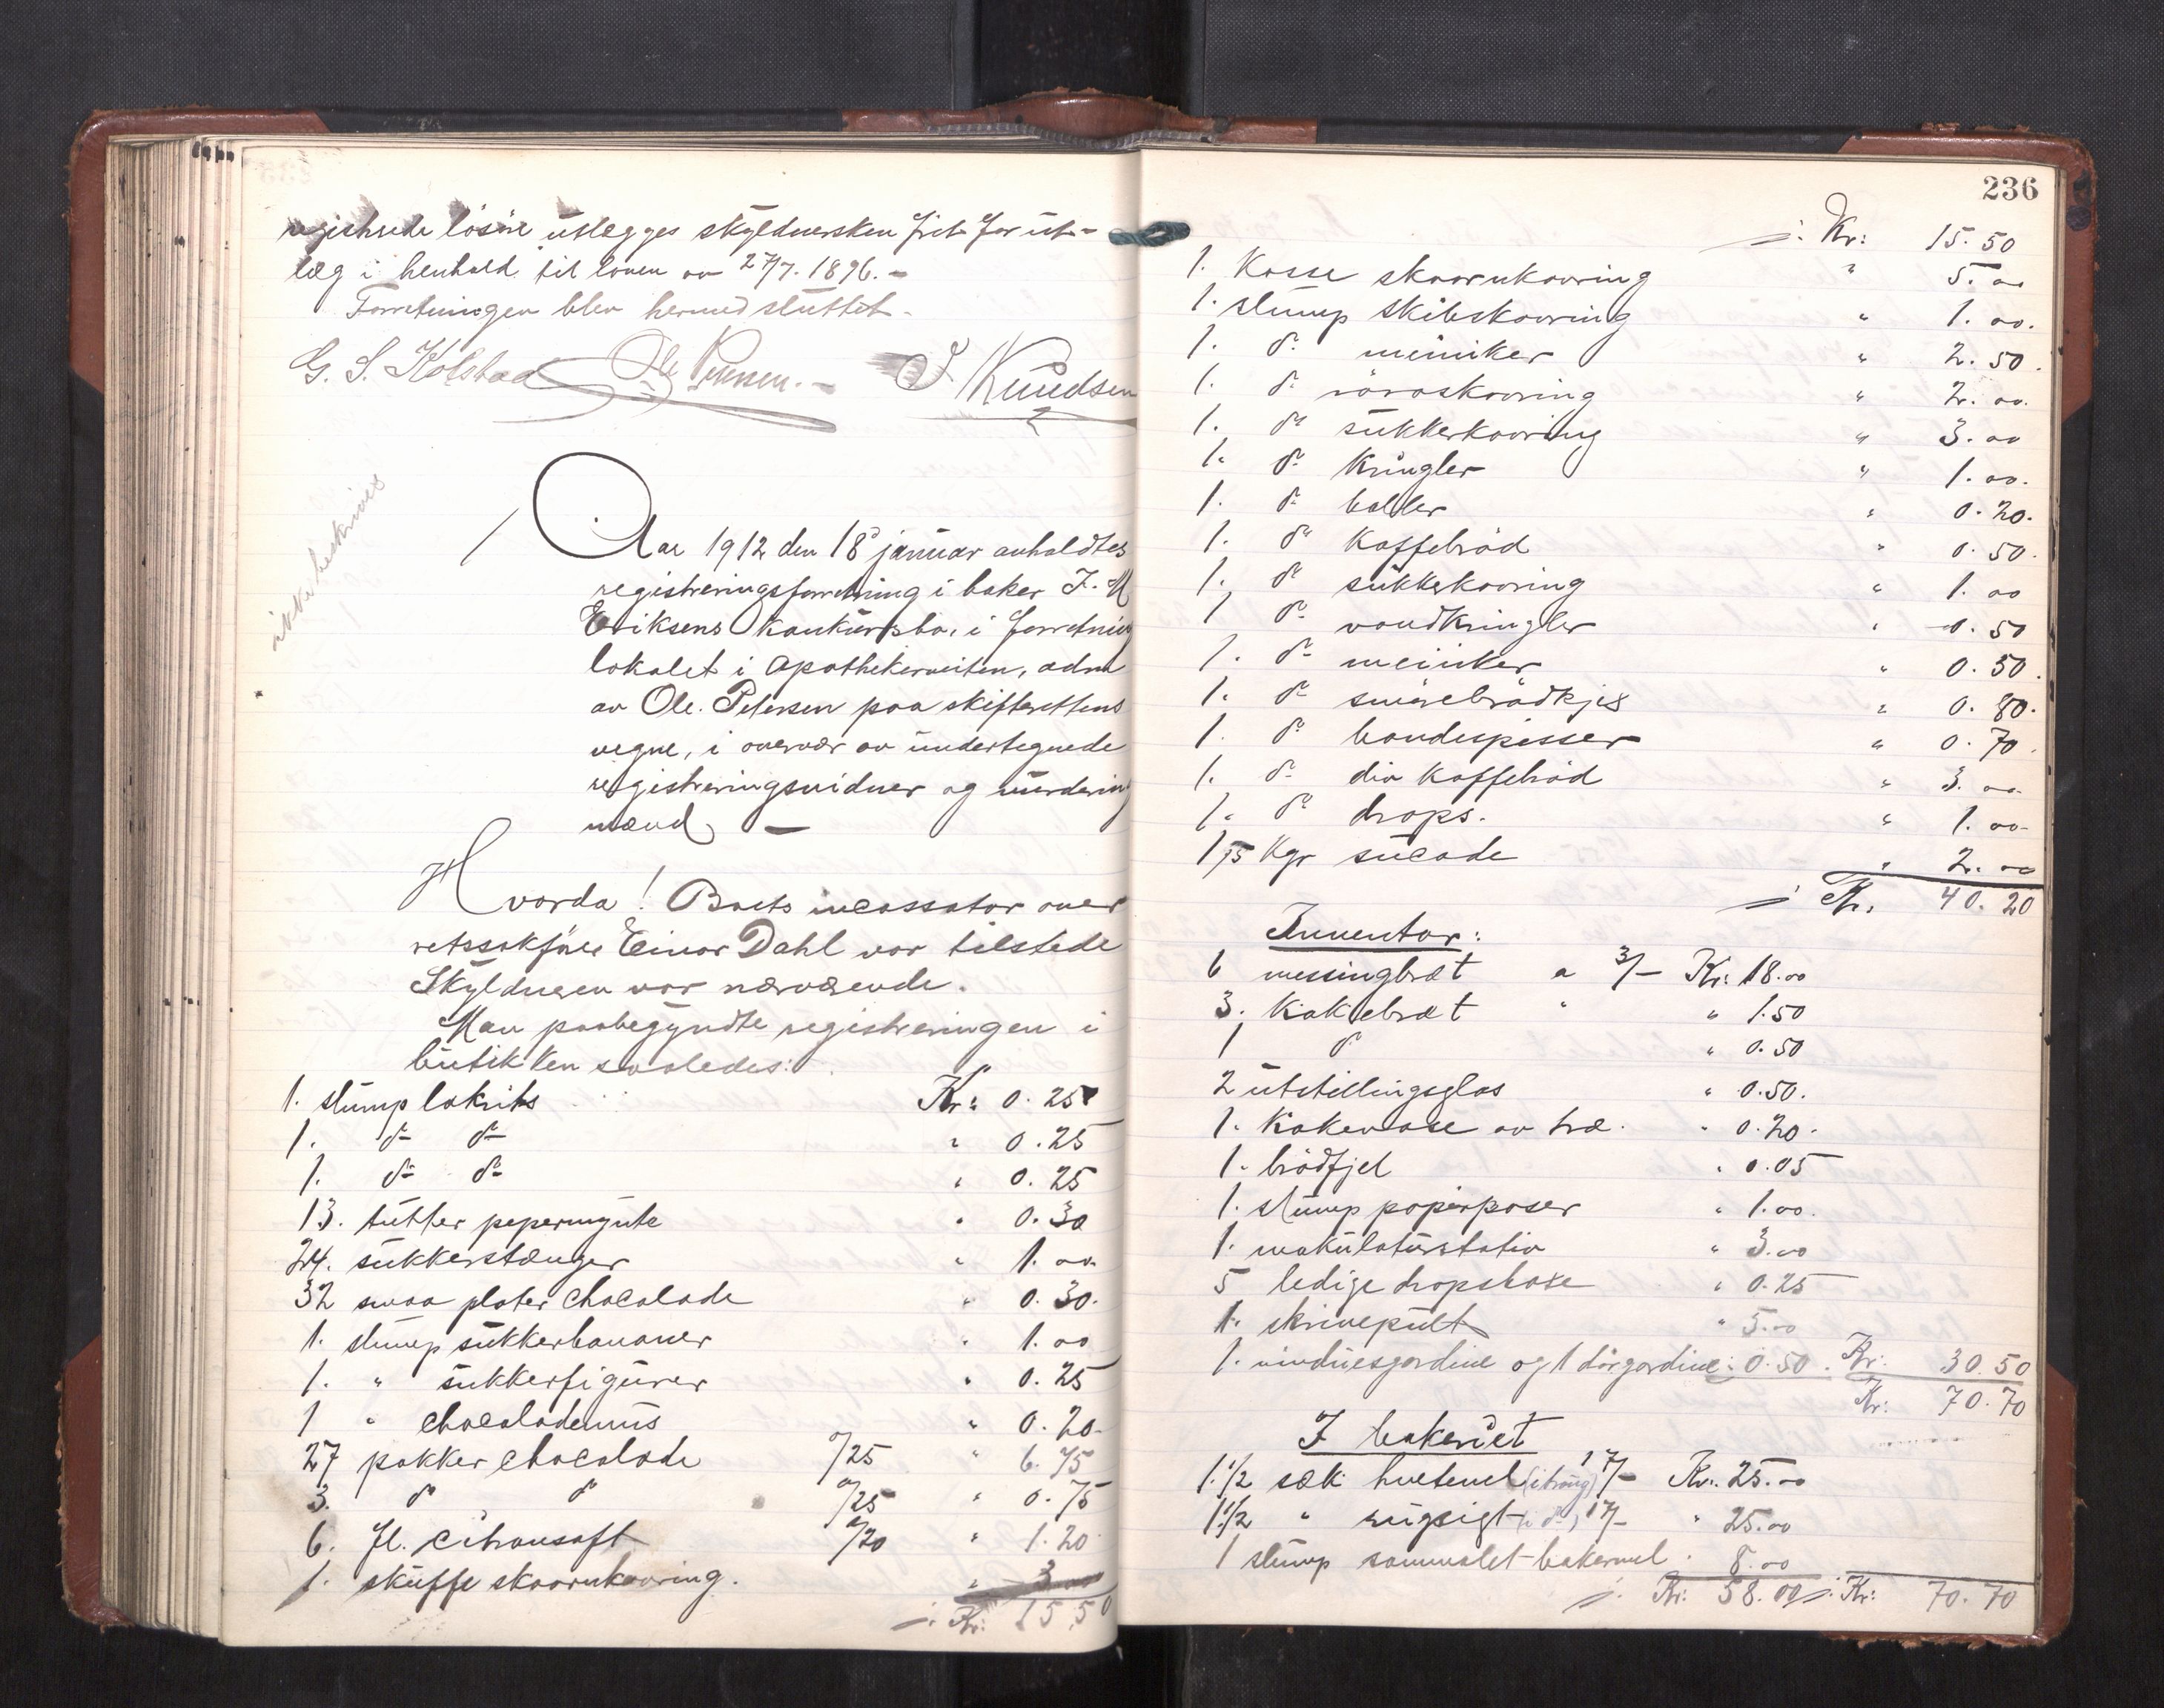 registrerede løsøre utlægges skyldnersken frit for ut-
læg i henhold til loven av 27/7. 1896. -
Forretningen blev hermed sluttet.
G. S. Kolstad Ole Petersen. - J. Knudsen
ikke beskrives
Aar 1912 den 18' januar avholdtes
registreringsforretning i baker J. M
Eriksens konkursbo, i forretning
lokalet i Apothekerveiten, adm
av Ole. Petersen paa skifterettens
vegne, i overvær av undertegnede
registreringsvidner og vurdering
mænd, -
Hvorda! Boets incassator over
retssakfører Einar Dahl var tilstede
Skyldneren var nærværende.
Man paabegyndte registreringen i
butikken saaledes:
1. slump lakrits Kr: 0.25
1. do do " 0.25
1. do do " 0.25
13. tutter pepermynte " 0.30
24. sukkerstænger " 1.00
32 smaa plater chocolade " 0.30.
1. slump sukkerbananer " 1.00
1. " sukkerfigurer " 0.25
1 " chocolademus " 0.20.
27 pakker chocolade a/25 " 6.75
3. do do a/25 " 0.75
6. fl. citronsaft a/20 " 1.20
1. skuffe skaarnkavring. " 3.00
j. Kr: 15,50
236
j. Kr: 15.50
1. Kasse skaarnkavring " 5.00
1. slump skibskavring " 1.00.
1. do " 2.50.
1. do røraskavring " 2.00.
1. do sukkerkavring " 3.00
1. do Kringler " 1.00.
1. do boller " 0.20.
1. do Kaffebrød " 0.50.
1. do sukkekavring " 1.00
1 do vandkringler " 0.50
1. do " 0.50.
1. do smørebrødkjex " 0.80.
1. do " 0.70.
1. do div kaffebrød " 3.00.
1. do drops. " 1.00
1,75 Kgr sucade " 2.00
j Kr. 40.20
Inventar:
6 messingbræt a 3/- Kr: 18.00
3. Kakebræt " " 1.50
1 do " 0.50
2 utstillingsglas " 0.50.
1. Kakevase av træ. " 0.20.
1. brødfjel " 0.05
1. slump papirposer " 1.00.
1. makulaturstativ " 3.00
5 ledige dropsbokse " 0.25
1. skrivepult " 5.00
1. vinduesgardine og 1 dørgardine: 0.50. Kr: 30.50
Kr: 70.70
I bakeriet
1 1/2 sæk hvetemel (i trang) 17/- Kr. 25.00
1 1/2 " rugsigt (i do) 17/- " 25.00
1 slump sammalet bakermel. 8.00
j. Kr: 58.00 j. Kr: 70.70